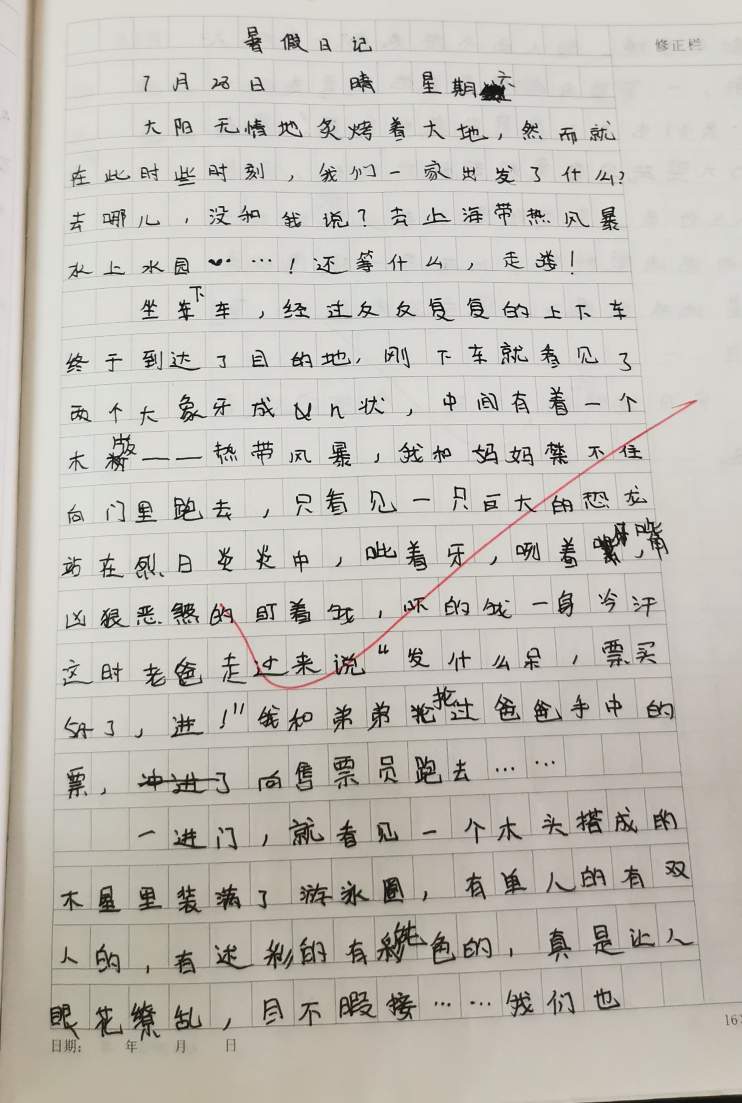 暑假日记
修正栏
7月28日 晴 星期六
大阳无情地炙烤着大地，然而就
在此时些时刻，我们一家出发了什么？
去哪儿，没和我说？去上海带热风暴
水上水园……！还等什么，走喽！
坐车下车，经过反反复复的上下车
终于到达了目的地，刚下车就看见了
两个大象牙成n状，中间有着一个
木版——热带风暴，我和妈妈禁不住
向门里跑去，只看见一只巨大的恐龙
站在烈日炎炎中，呲着牙，咧着嘴，
凶狠恶煞的盯着我，吓的我一身冷汗
这时老爸走过来说“发什么呆，票买
好了，进！”我和弟弟抢过爸爸手中的
票，向售票员跑去……
一进门，就看见一个木头搭成的
木屋里装满了游泳圈，有单人的有双
人的，有迷彩的有纯色的，真是让人
眼花缭乱，目不暇接……我们也
日期： 年 月 日